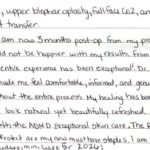 , upper blepharoplasty, full face CO2, an
t transfer.
am now 3 months post-op from my pro
ld not be happier with my results. From
entire experience has been exceptional. Dr.
ade me feel comfortable, informed, and genu
hout the entire process. My healing has been
look natural yet beautifully refreshed.
ith the Exceptional skin care. The R
Protect are my new must have staples. I am
for 2026!